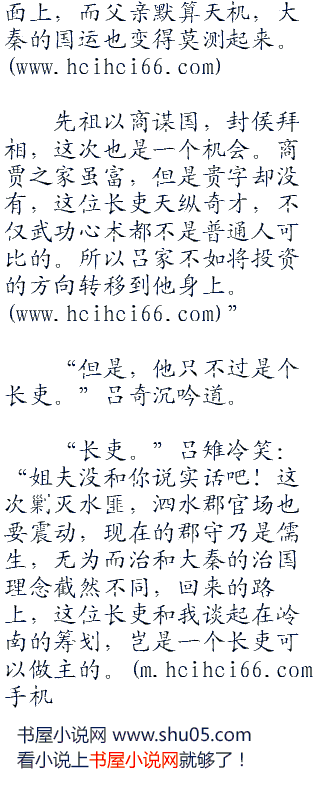 面上，而父亲默算天机，大
秦的国运也变得莫测起来。
(www.hcihci66.com)
先祖以商谋国，封侯拜
相，这次也是一个机会。商
贾之家虽富，但是贵字却没
有，这位长吏天纵奇才，不
仅武功心术都不是普通人可
比的。所以吕家不如将投资
的方向转移到他身上。
(www.hcihci66.com)”
“但是，他只不过是个
长吏。”吕奇沉吟道。
“长吏。”吕雉冷笑：
“姐夫没和你说实话吧！这
次剿灭水匪，泗水郡官场也
要震动，现在的郡守乃是儒
生，无为而治和大秦的治国
理念截然不同，回来的路
上，这位长吏和我谈起在岭
南的筹划，岂是一个长吏可
以做主的。(m.hcihci66.com
手机
书屋小说网 www.shu05.com
看小说上书屋小说网就够了！